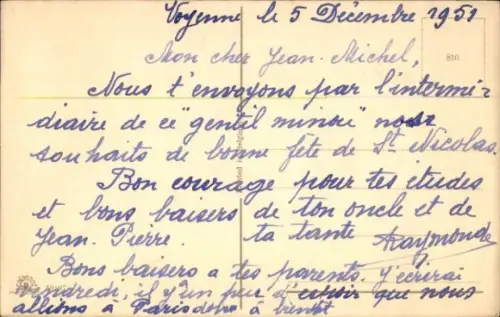 Voyenne le 5 Décembre 1951
810
Mon cher Jean-Michel,
Nous t'envoyons par l'intermé-
diaire de ce "gentil minou" nos
souhaits de bonne fête de St Nicolas.
Bon courage pour tes études
et bons baisers de ton oncle et de
Jean-Pierre. ta tante Raymonde
Bons baisers a tes parents. j'écrirai
vendredi, il y'a un peu d'espoir que nous
allions à Paris donc à bientôt